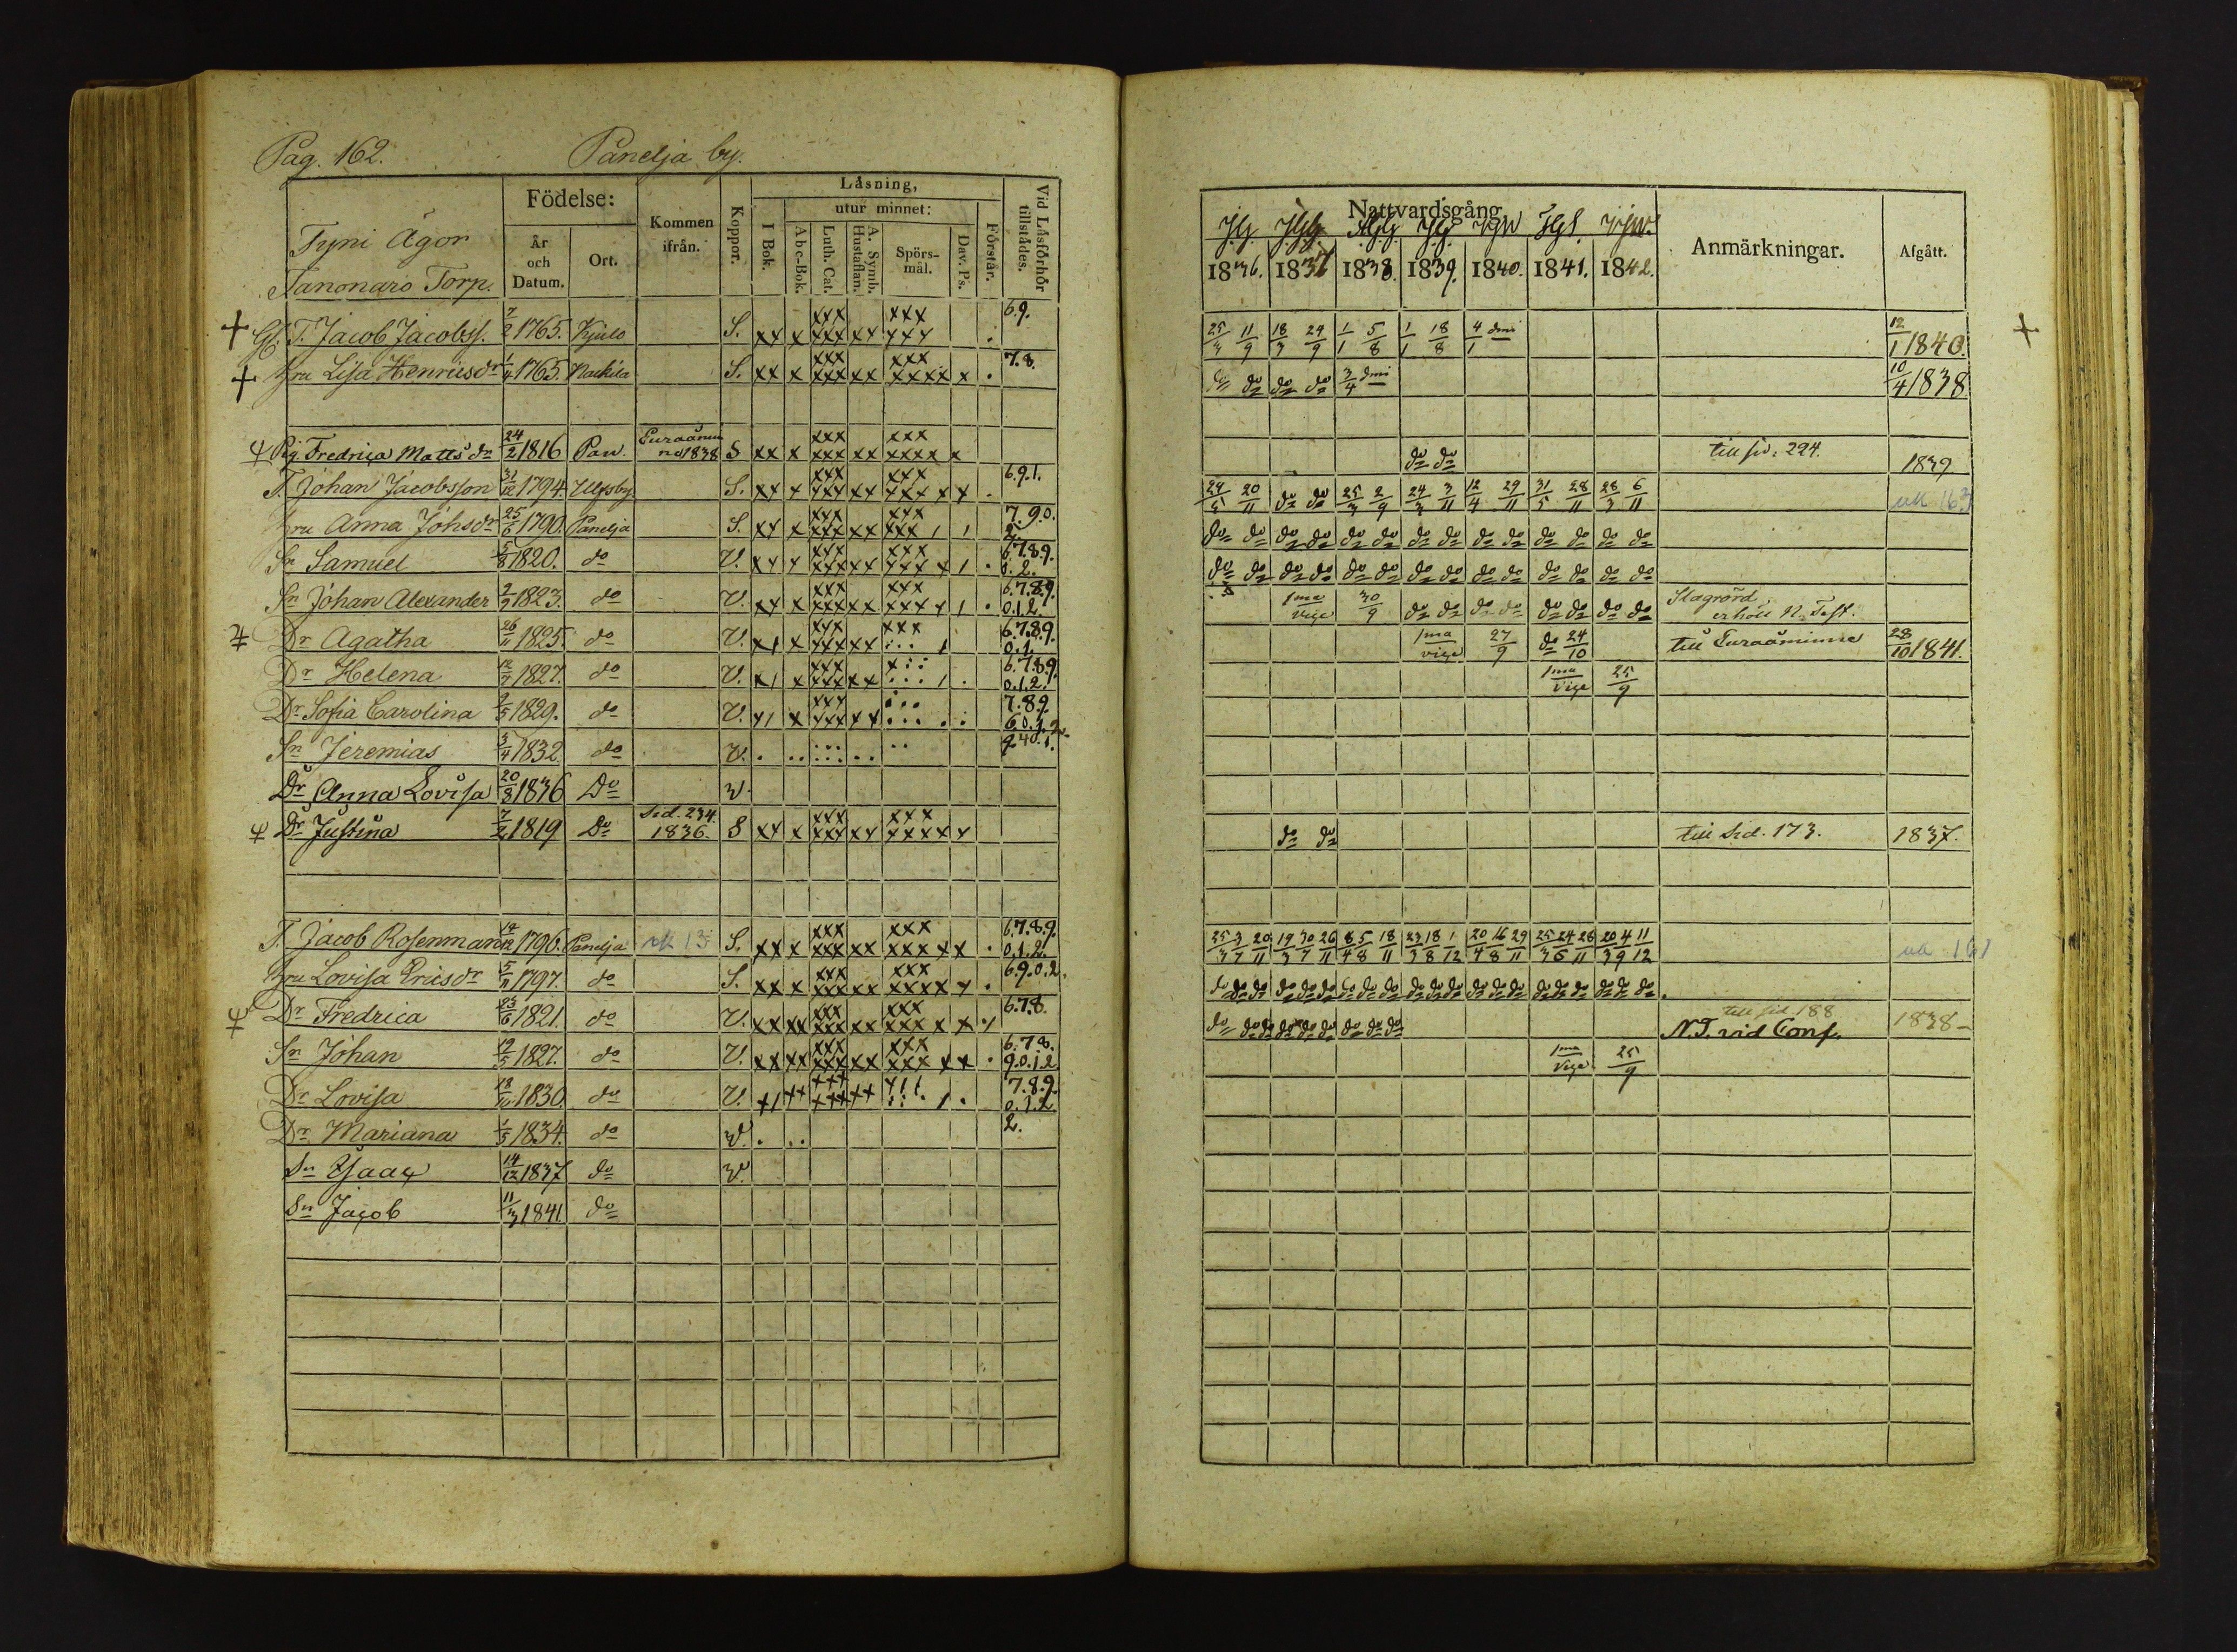 Pag. 162. Panelja by.
Tyni Ägor
Tanonaro Torp.
Födelse:
År och Datum.
Ort.
Kommen ifrån.
Koppor.
Läsning,
I Bok.
utur minnet:
Abc-Bok.
Luth. Cat.
A. Symb. Hustaflan.
Spörsmål.
Dav. Ps.
Förstår.
Vid Läsförhör tillstädes.
Gl. T. Jacob Jacobss. 7/2 1765. Kjulo S. xx x xxx xxx xx xxx xxx . 6.9.
Hru Lisa Henricsdr 1/4 1765. Nackila S. xx x xxx xxx xx xxx xxxx x . 7.8.
Pig. Fredrica Mattsdr 24/2 1816 Paw. 1838 S xx x xxx xxx xx xxx xxxx x
T. Johan Jacobsson 31/12 1794. Ulfsby S. xx x xxx xxx xx xxx xxx x x . 6.9.1.
Hru Anna Johsdr 25/2 1790. Panelja S. xx x xxx xxx xx xxx xxx 7.9.0. 2.
Sn Samuel 5/8 1820. do V. xx x xxx xxx xx xxx xxx x . 6.7.8.9. 0.2.
Sn Johan Alexander 2/9 1823. do V. xx x xxx xxx xx xxx xxx x . 6.7.8.9. 0.1.2.
Dr Agatha 26/11 1825. do V. 6.7.8.9. 0.1.
Dr Helena 12/7 1827. do V. 6.7.8.9. 0.1.2.
Dr Sofia Carolina 9/5 1829. do V. 7.8.9. 6.0.1.2.
Sn Jeremias 3/4 1832. do V.
Dr Anna Lovisa 20/8 1836 Do v.
Dr Justina 1819 Do Sid. 234. 1836. S xx x xxx xxx xx xxx xxxx x
T. Jacob Rosenman 14/12 1796. Panelja S. xx x xxx xxx xx xxx xxx xx . 6.7.8.9. 0.1.2.
Hru Lovisa Ericsdr 1797. do S. xx x xxx xxx xx xxx xxxx x . 6.9.0.2.
Dr Fredrica 23/6 1821. do V. xx xx xxx xxx xx xxx xxx x x 6.7.8.
Sn Johan 19/3 1827. do V. xx xx xxx xxx xx xxx xxx xx . 6.7.8. 9.0.1.2
Dr Lovisa 18/10 1830. do V. 7.8.9. 0.1.2.
Dr Mariana 1/5 1834. do V. 2.
Sn Ysaac 14/12 1837 do V.
Sn Jacob 11/3 1841. do
Nattvardsgång.
1836. 1837 1838. 1839. 1840. 1841. 1842.
Anmärkningar.
Afgått.
25/3 11/9 18/3 24/9 1/1 5/8 1/1 18/8 4/1 dmi 12/1 1840.
do do do do 3/4 dmi 10/4 1838.
do do till sid. 224. 1839
29/5 20/11 do do 25/3 2/9 24/3 3/11 12/4 29/11 31/5 28/11 28/3 6/11
do do do do do do do do do do do do do do
do do do do do do do do do do do do do do
1ma vice 30/9 do do do do do do do do erhöll N. Test.
1ma vice 27/9 do 24/10 till Euraåminne 28/10 1841.
1ma Vice 25/9
do do till Sid. 173. 1837.
25/3 3/7 20/11 19/3 30/7 26/11 8/4 5/8 18/11 23/3 18/8 1/12 20/4 16/8 29/11 25/3 24/6 28/11 20/3 4/9 11/12 161
do do do do do do do do do do do do do do do do do do do do do
do do do do do do do do do till sid 188 N.T. vid Conf. 1838
1ma Vice 25/9